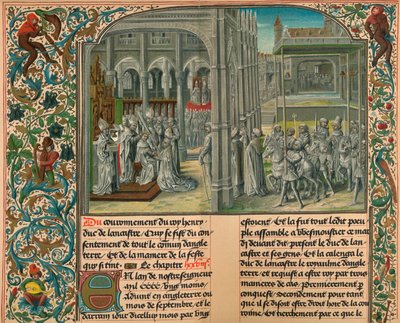 Du couronnement du roy henry
duc de lancastre. Quy se fist du con
sentement de tout le comun dangle
terre. Et de la maniere de la feste
quy si tint. Le chapitre
En lan de nostre seigneur
mil cccc. ung moins
Aduint en angleterre ou
mois de septembre et le
darrain iour dicelluy mois par ung
estoient. Et la fut tout ledit peu
ple assemble a wesmoustier et mar
di deuant dit present le duc de lan
castre et ses gens. Et la calenga le
duc de lancastre le royaulme dangle
terre et requist a estre roy par trois
manieres de cas. Premierement p
conqueste. Secondement pour tant
que il se disoit estre droit hoir de la cou
ronne. Et tiercement par ce que le